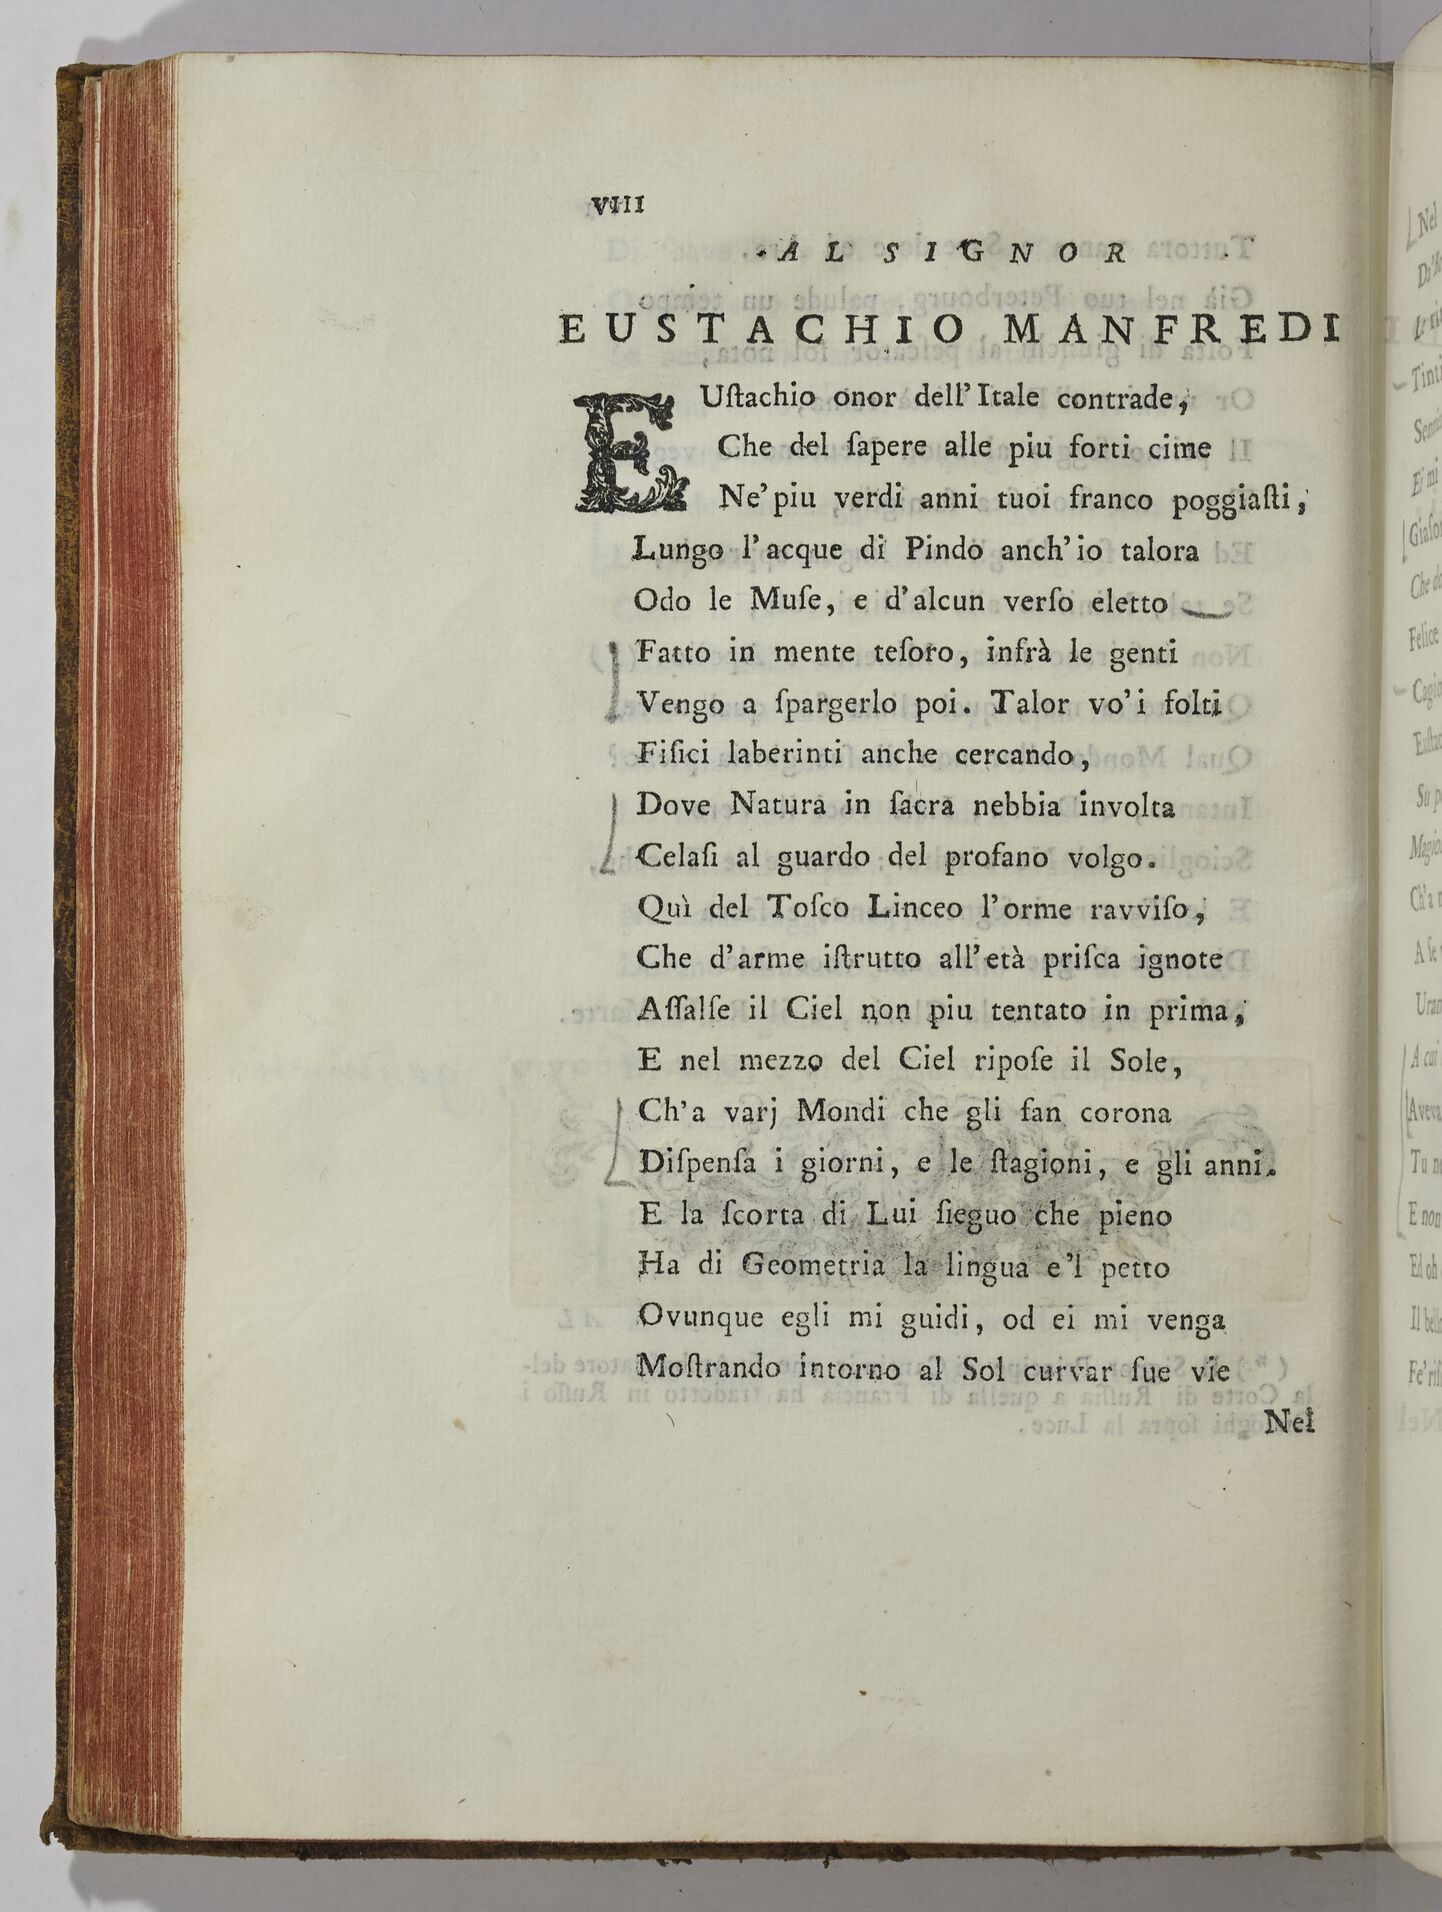 VIII
AL SIGNOR
EUSTACHIO MANFREDI
EUſtachio onor dell'Itale contrade,
Che del ſapere alle piu forti cime
Ne'piu verdi anni tuoi franco poggiaſti,
Lungo l'acque di Pindo anch'io talora
Odo le Muſe, e d'alcun verſo eletto
Fatto in mente teſoro, infrà le genti
Vengo a ſpargerlo poi. Talor vo'i folti
Fiſici laberinti anche cercando,
Dove Natura in ſacra nebbia involta
Celaſi al guardo del profano volgo.
Quì del Toſco Linceo l'orme ravviſo,
Che d'arme iſtrutto all'età priſca ignote
Aſſalſe il Ciel non piu tentato in prima,
E nel mezzo del Ciel ripoſe il Sole,
Ch'a varj Mondi che gli fan corona
Diſpenſa i giorni, e le ſtagioni, e gli anni.
E la ſcorta di Lui ſieguo che pieno
Ha di Geometria la lingua e'l petto
Ovunque egli mi guidi, od ei mi venga
Moſtrando intorno al Sol curvar ſue vie
Nel